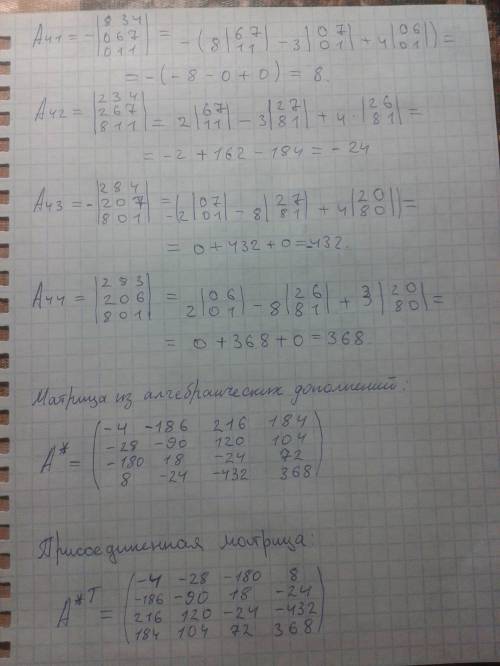 A₄₁ = - |8 3 4; 0 6 7; 0 1 1| = -(8|6 7; 1 1| - 3|0 7; 0 1| + 4|0 6; 0 1|) =
= -(-8 - 0 + 0) = 8.
A₄₂ = |2 3 4; 2 6 7; 8 1 1| = 2|6 7; 1 1| - 3|2 7; 8 1| + 4·|2 6; 8 1| =
= -2 + 162 - 184 = -24
A₄₃ = - |2 8 4; 2 0 7; 8 0 1| = -(2|0 7; 0 1| - 8|2 7; 8 1| + 4|2 0; 8 0|) =
= 0 + 432 + 0 = -432.
A₄₄ = |2 8 3; 2 0 6; 8 0 1| = 2|0 6; 0 1| - 8|2 6; 8 1| + 3|2 0; 8 0| =
= 0 + 368 + 0 = 368.
Матрица из алгебраических дополнений:
A* = (-4 -186 216 184
-28 -90 120 104
-180 18 -24 72
8 -24 -432 368)
Присоединенная матрица:
A*ᵀ = (-4 -28 -180 8
-186 -90 18 -24
216 120 -24 -432
184 104 72 368)